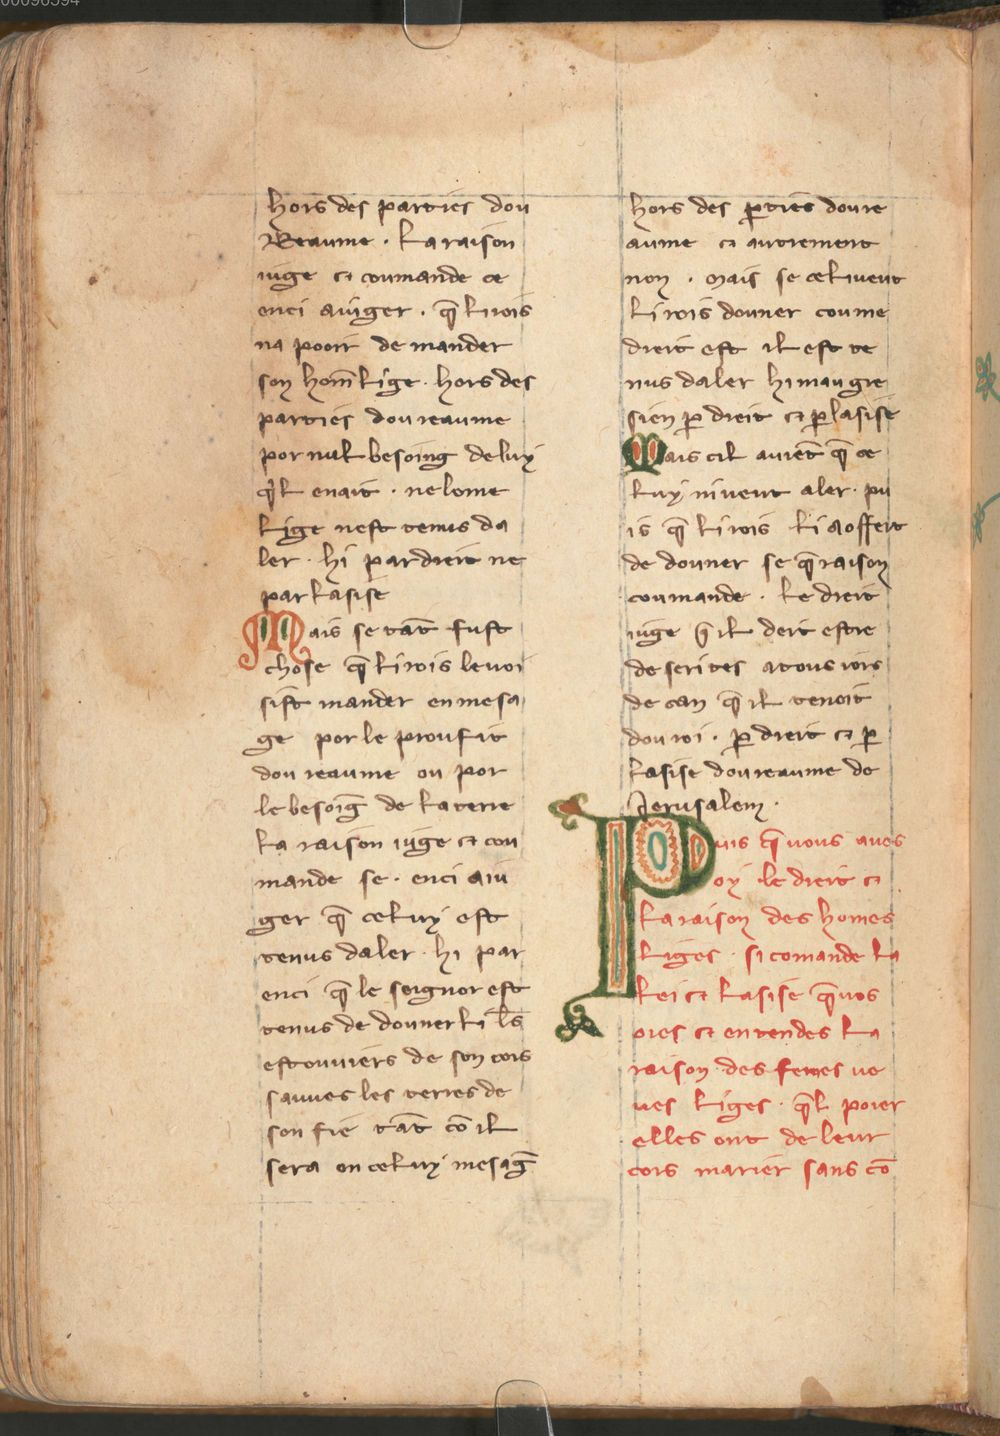 hors des parties dou
Reaume . La raison
iuge et coumande ce
enci aiuger . q̄ li rois
na pooir de mander
son hom̄ lige . hors des
parties dou reaume
por nul besoing de luy
q̄l enait . ne lome
lige nest tenus da
ler . hi par dreit ne
par lasise
Mais se tāt fust
chose q̄ li rois le voi
sist mander en mesa
ge por le proufit
dou reaume ou por
le besoiḡ de la terre
la raison iuge et cou
mande se . enci aiu
ger q̄ celuy est
tenus daler . hi par
enci q̄ le seignor est
tenus de douner li l̄s
estouviers de son cors
sauves les terres de
son fie tāt cō il
sera en celuy mesaḡ
hors des p̄ties dou re
aume et autrement
non . mais se cel veut
li rois douner coume
dreit est il est te
nus daler hi maugre
sien p̄ dreit et p̄ lasise
Mais cil avient̄ q̄ ce
luy ni veut aler . pu
is q̄ li rois li a offert
de douner se q̄ raison
coumande . le dreit
iuge q̄ il deit estre
deserites a tous iors
de can q̄ il tenoit
dou roi . p̄ dreit et p̄
lasise dou reaume de
Jerusalem .
Puis q̄ vous aves
oy le dreit et
la raison des homes
liges . si comande la
lei et lasise q̄ vos
oies et entendes la
raison . des femes ve
ves liges . q̄l poier
elles ont de leur
cors marier sans cō